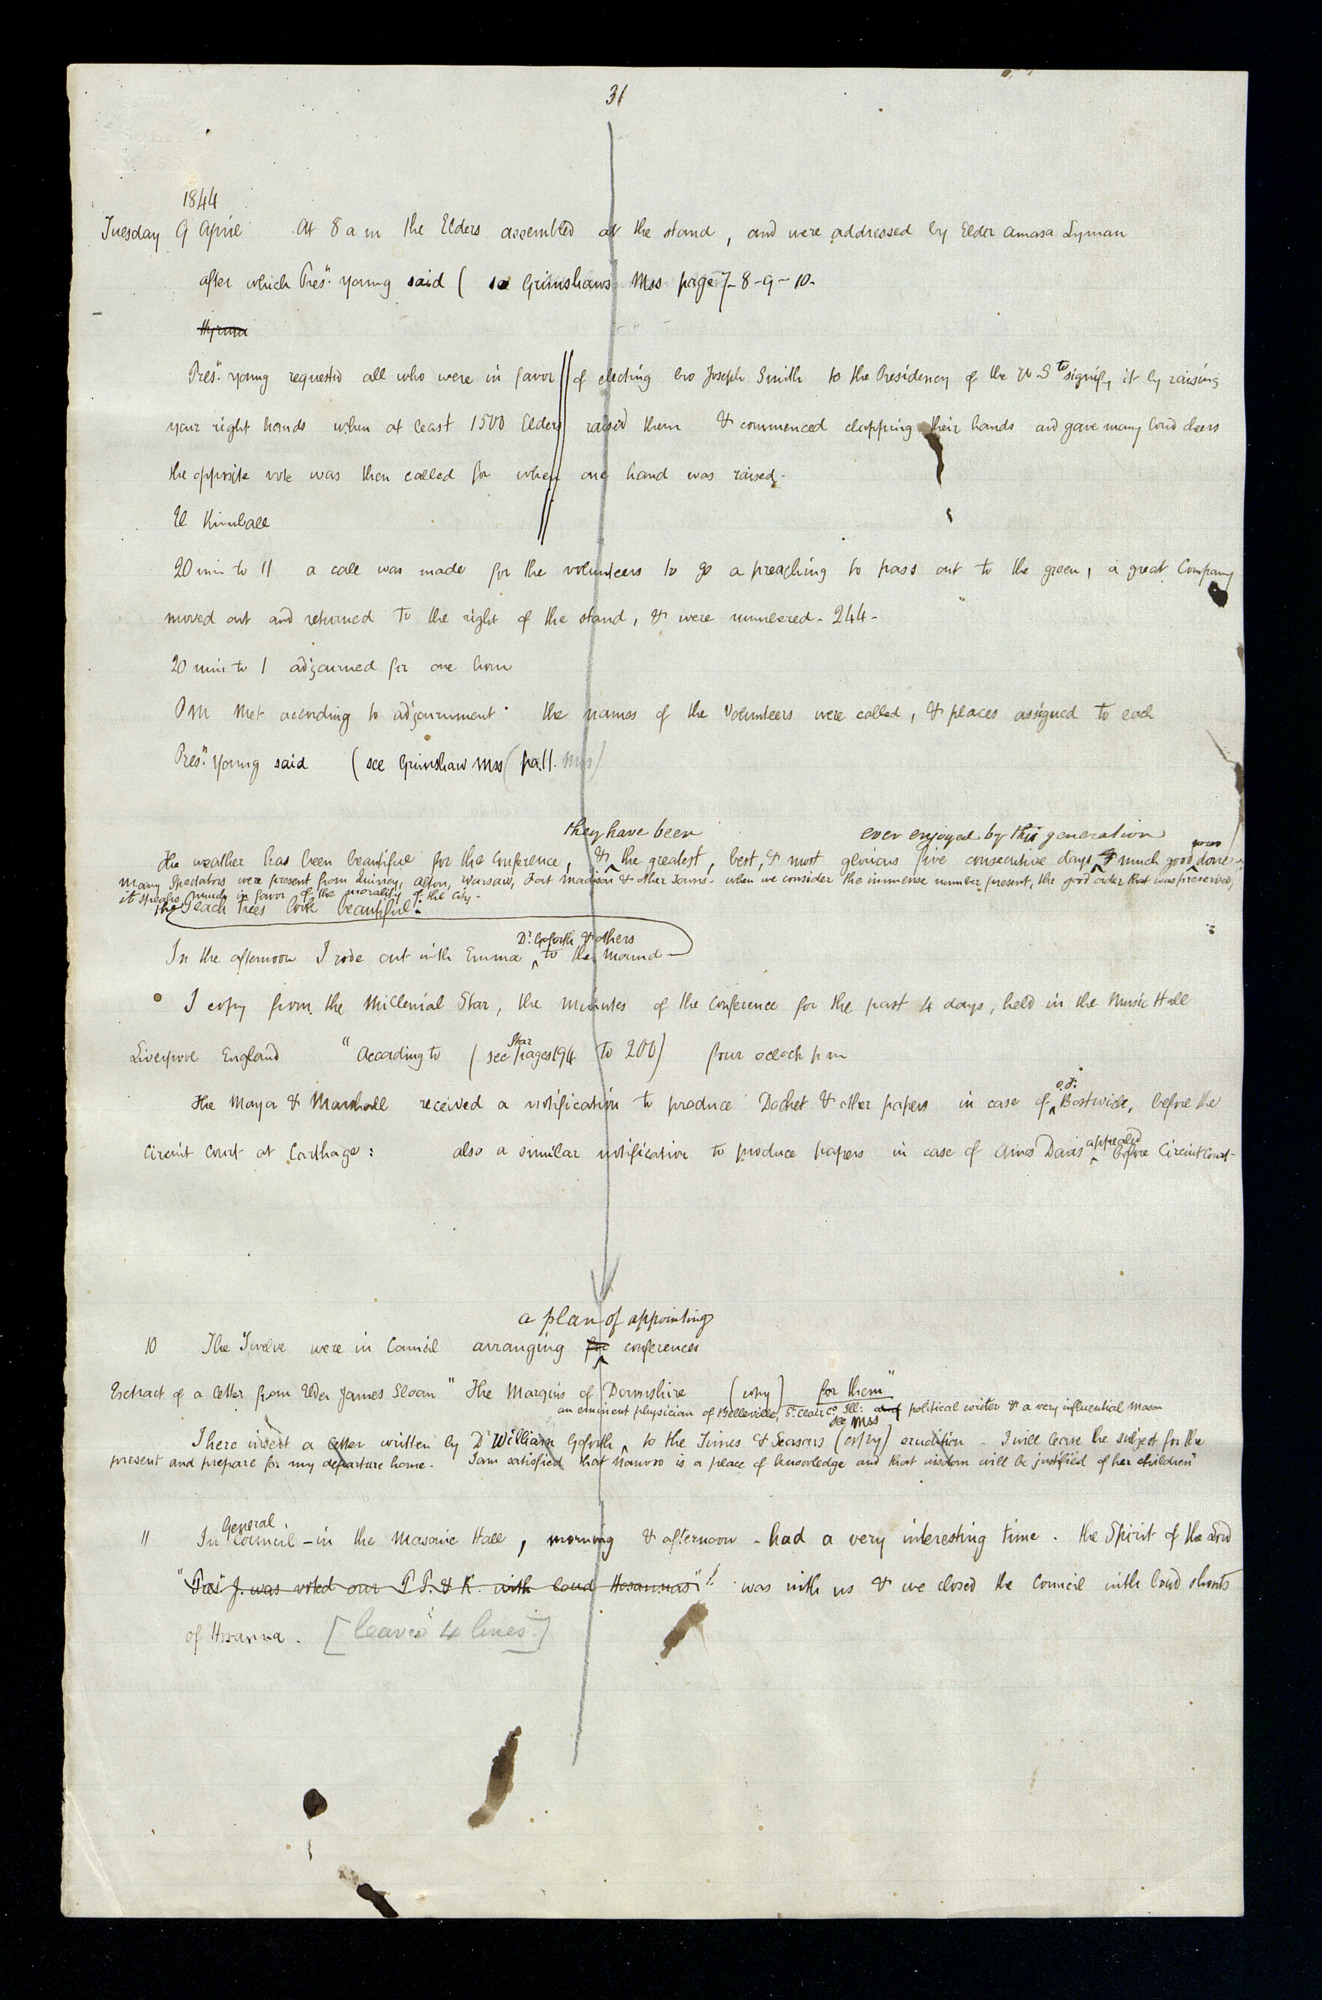 31
1844
Tuesday 9 April At 8 a m the Elders assembled at the stand, and were addressed by Elder Amasa Lyman
after which Prest. Young said ( see Grimshaws Mss page 7-8-9-10-
Hyrum
Prest. Young requested all who were in favor of electing bro Joseph Smith to the Presidency of the U. S to signify it by raising
your right hands when at least 1500 Elders raised them & commenced clapping their hands and gave many loud cheers
the opposite vote was then called for when one hand was raised.
El Kimball
20 min to 11 a call was made for the volunteers to go a preaching to pass out to the green, a great Company
moved out and returned to the right of the stand, & were numbered - 244 -
20 min to 1 adjourned for one hour
PM Met according to adjournment. the names of the Volunteers were called, & places assigned to each
Prest. Young said (see Grimshaw Mss (pa. 11. Mss)
they have been ever enjoyed by this generation
The weather has been beautiful for the Conference, & the greatest, best, & most glorious five consecutive days & much good was done -
many Spectators were present from Quincy, Alton, Warsaw, Fort Madison & other Towns - when we consider the immense number present, the good order that was preserved,
it speaks much in favor of the morality of the City -
the Peach Trees look beautiful.
Dr. Goforth & others
In the afternoon I rode out with Emma to the Mound -
I copy from the Millenial Star, the minutes of the Conference for the past 4 days, held in the Music Hall
Liverpool England "According to (see Star pages 194 to 200) four oclock p m
o. F.
The Mayor & Marshall received a notification to produce Docket & other papers in case of Bostwick, before the
Circuit Court at Carthage: also a similar notification to produce papers in case of Amos Davis appealed before Circuit Court -
a plan of appointing
10 The Twelve were in Council arranging for conferences
Extract of a letter from Elder James Sloan " The Margins of Dormshire (copy) for them"
an eminent physician of Belleville, St. Clair Co Ill: and political writer & a very influential Mason
see Mss
I here insert a letter written by Dr William Goforth to the Times & Seasons (copy) erudition. I will leave the subject for the
present and prepare for my departure home - I am satisfied that Nauvoo is a place of knowledge and that wisdom will be justified of her children"
General
11 In Council - in the Masonic Hall, morning & afternoon - had a very interesting time. the Spirit of the Lord
"Prest J. was voted our P. P. & K. with loud Hosannas"! was with us & we closed the Council with loud shouts
of Hosanna. [leave 4 lines.]